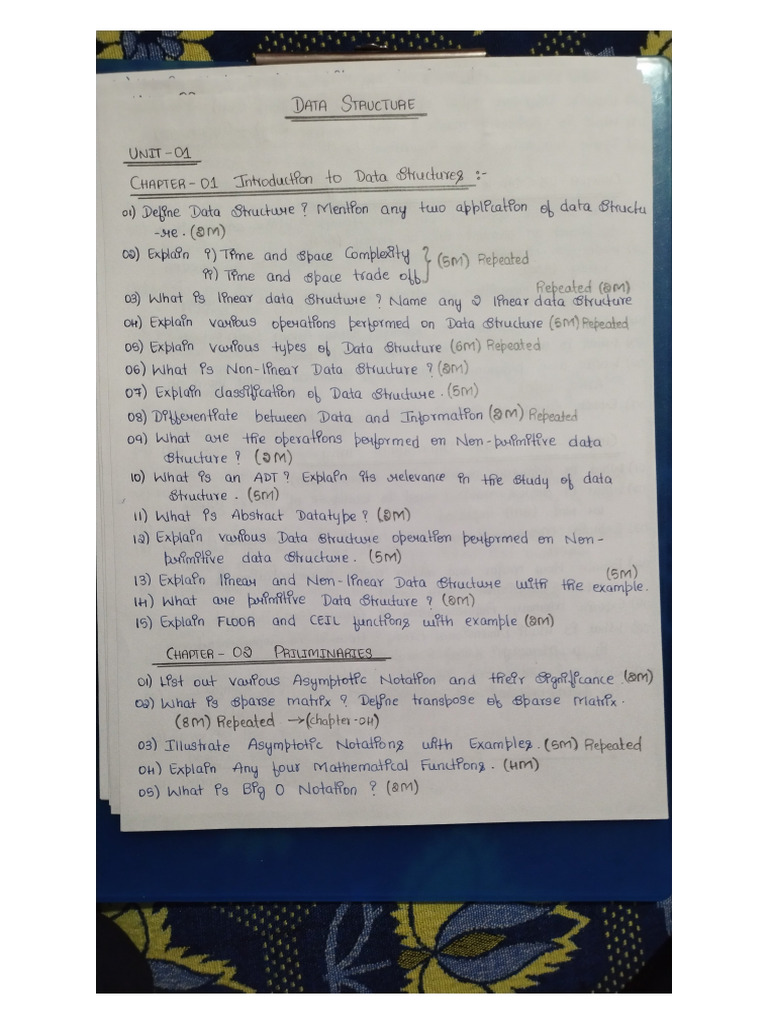 DATA STRUCTURE
UNIT-01
CHAPTER-01 Introduction to Data Structures :-
01) Define Data Structure? Mention any two application of data Structu
-re. (2M)
02) Explain i) Time and Space Complexity
ii) Time and Space trade off
(5M) Repeated
Repeated (2M)
03) What is linear data Structure? Name any 2 linear data Structure
04) Explain various operations performed on Data Structure (5M) Repeated
05) Explain various types of Data Structure (6M) Repeated
06) What is Non-linear Data Structure? (2M)
07) Explain classification of Data Structure. (5M)
08) Differentiate between Data and Information (2M) Repeated
09) What are the operations performed on Non-primitive data
Structure? (2M)
10) What is an ADT? Explain its relevance in the study of data
Structure. (5M)
11) What is Abstract Datatype? (2M)
12) Explain various Data Structure operation performed on Non-
primitive data Structure. (5M)
(5M)
13) Explain linear and Non-linear Data Structure with the example.
14) What are primitive Data Structure? (2M)
15) Explain FLOOR and CEIL functions with example (2M)
CHAPTER-02 PRILIMINARIES
01) List out various Asymptotic Notation and their Significance. (2M)
02) What is Sparse matrix? Define transpose of Sparse Matrix.
(8M) Repeated →(chapter-04)
03) Illustrate Asymptotic Notations with Examples. (5M) Repeated
04) Explain Any four Mathematical Functions. (4M)
05) What is Big O Notation? (2M)